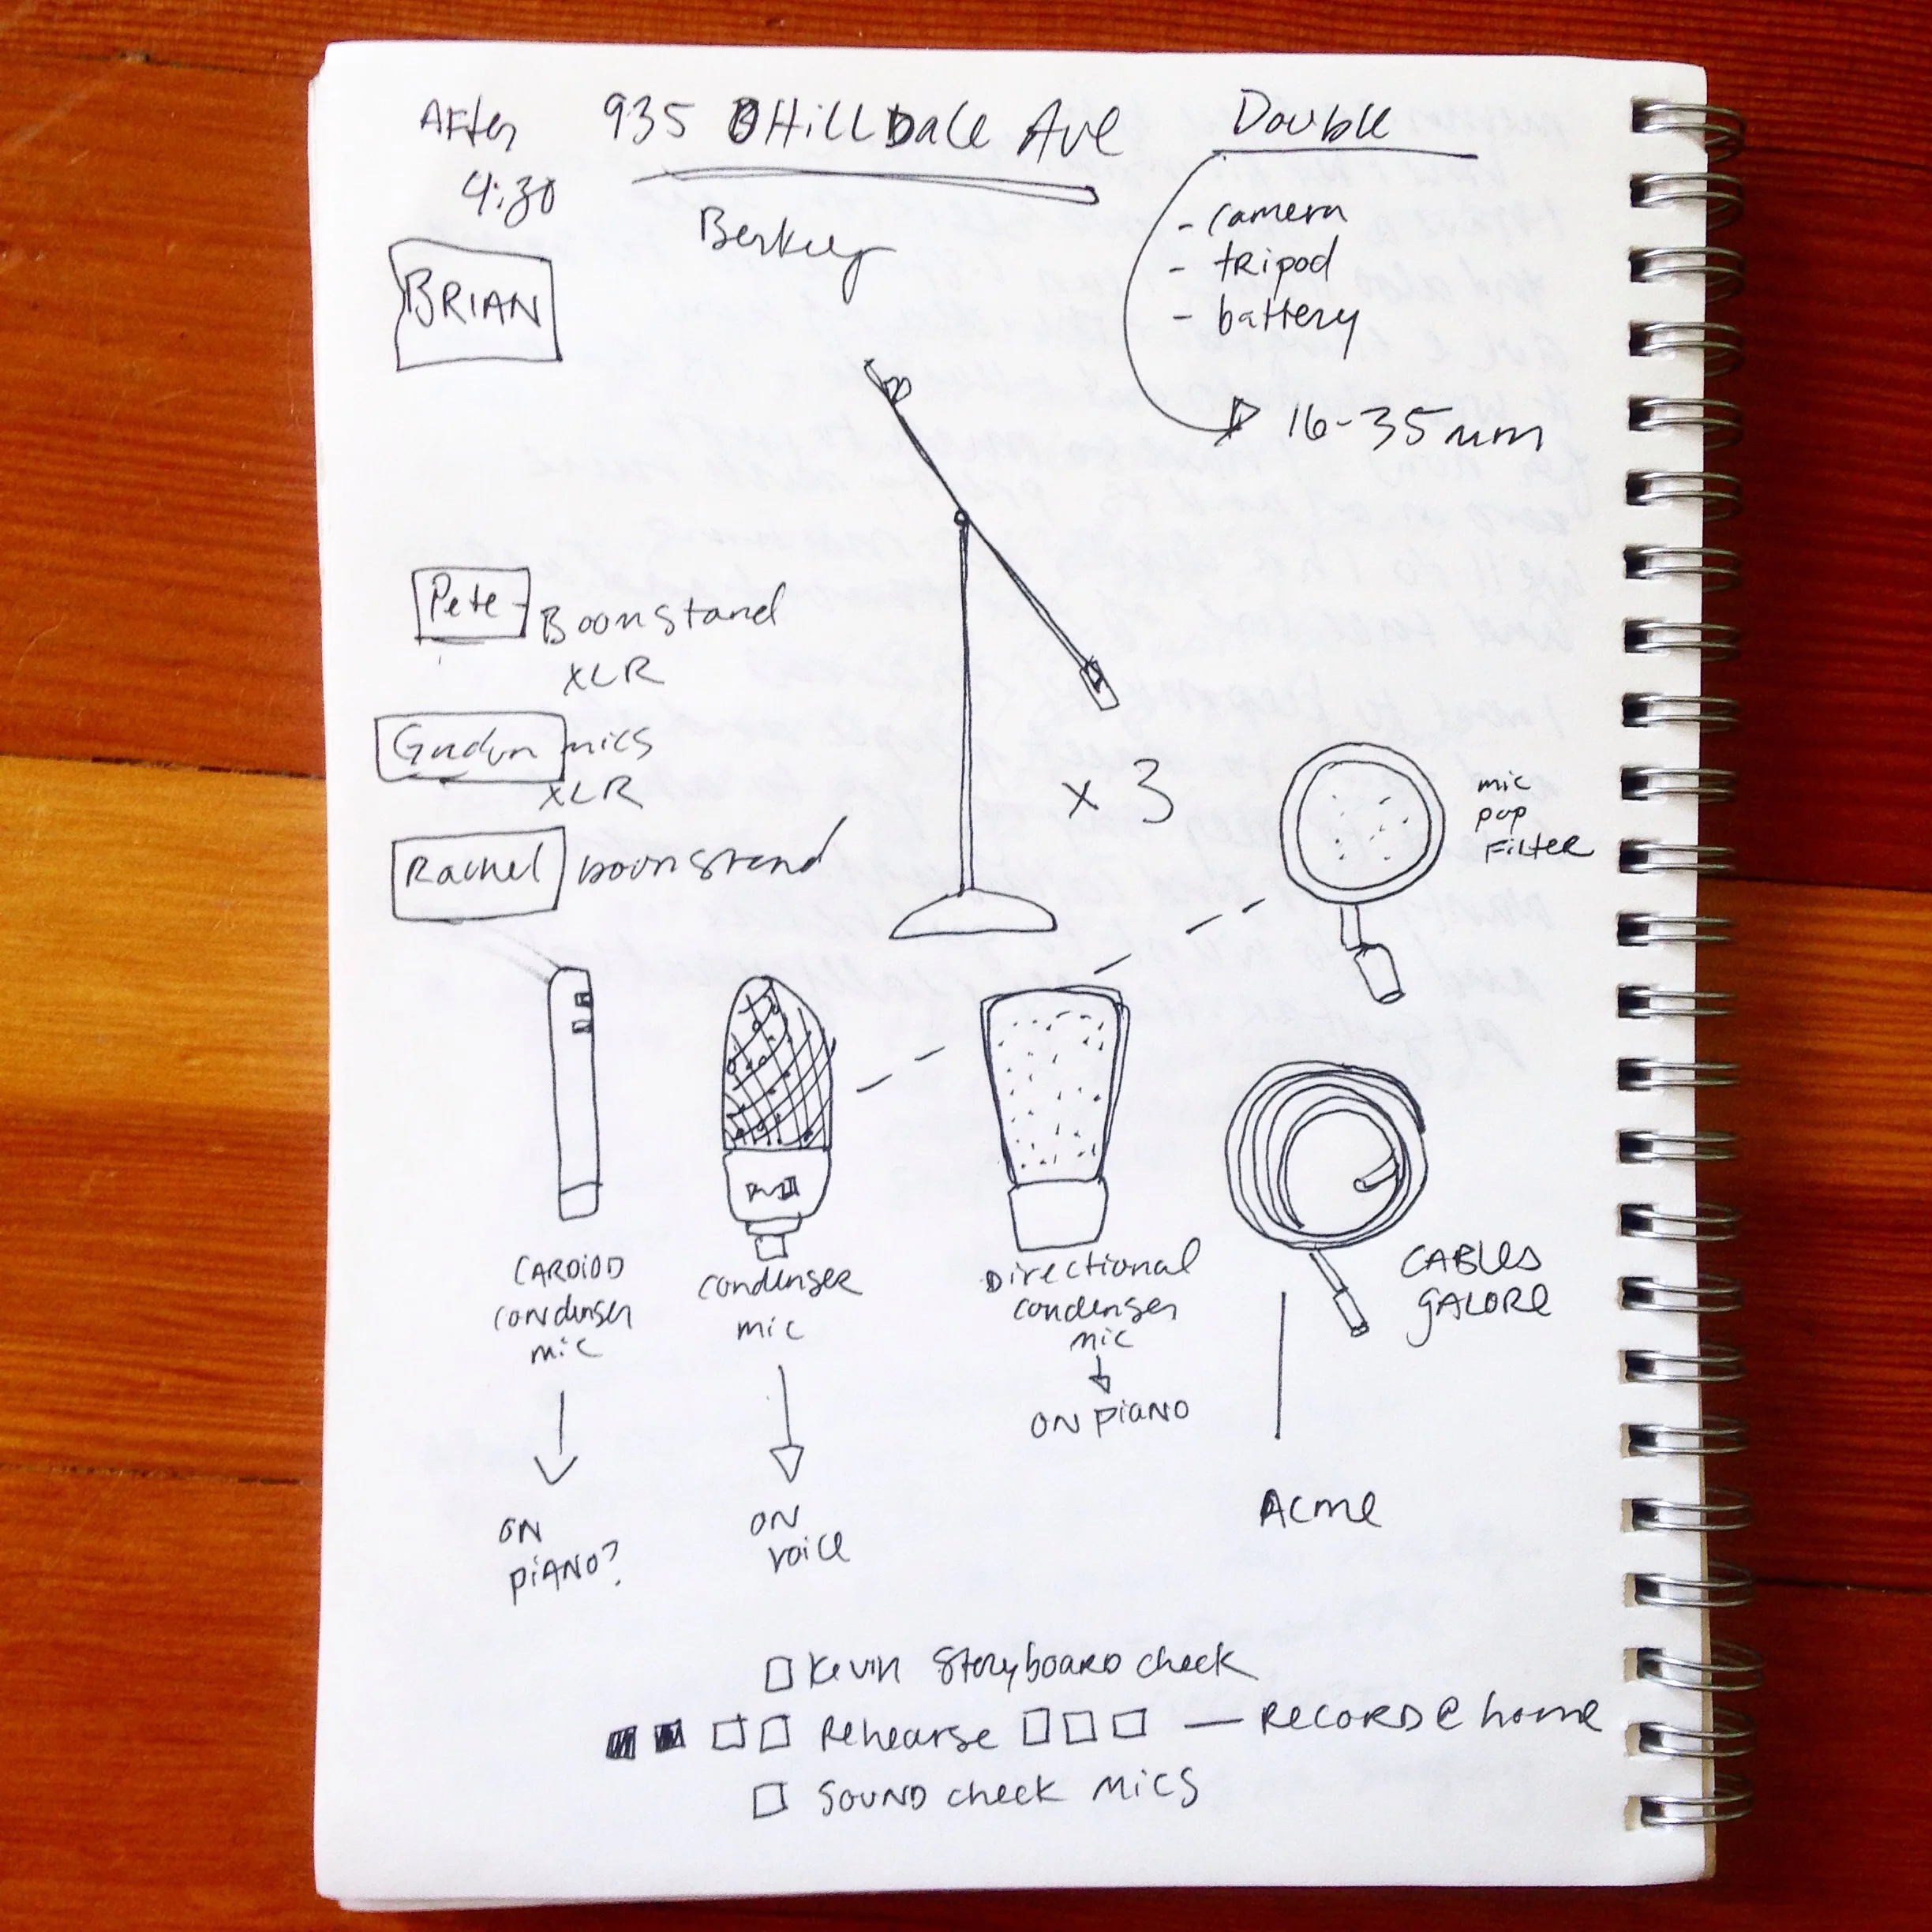 After
4:30
935 Hilldale Ave
Berkley
Double
- camera
- tripod
- battery
16-35mm
BRIAN
Pete - Boomstand
XLR
mics
XLR
Rachel boomstand
x 3
mic
pop
filter
CARDIOD
condenser
mic
ON
PIANO?
condenser
mic
ON
voice
Directional
condenser
mic
ON PIANO
CABLES
GALORE
Acme
Kevin Storyboard check
Rehearse — RECORD @ home
SOUND check MICS